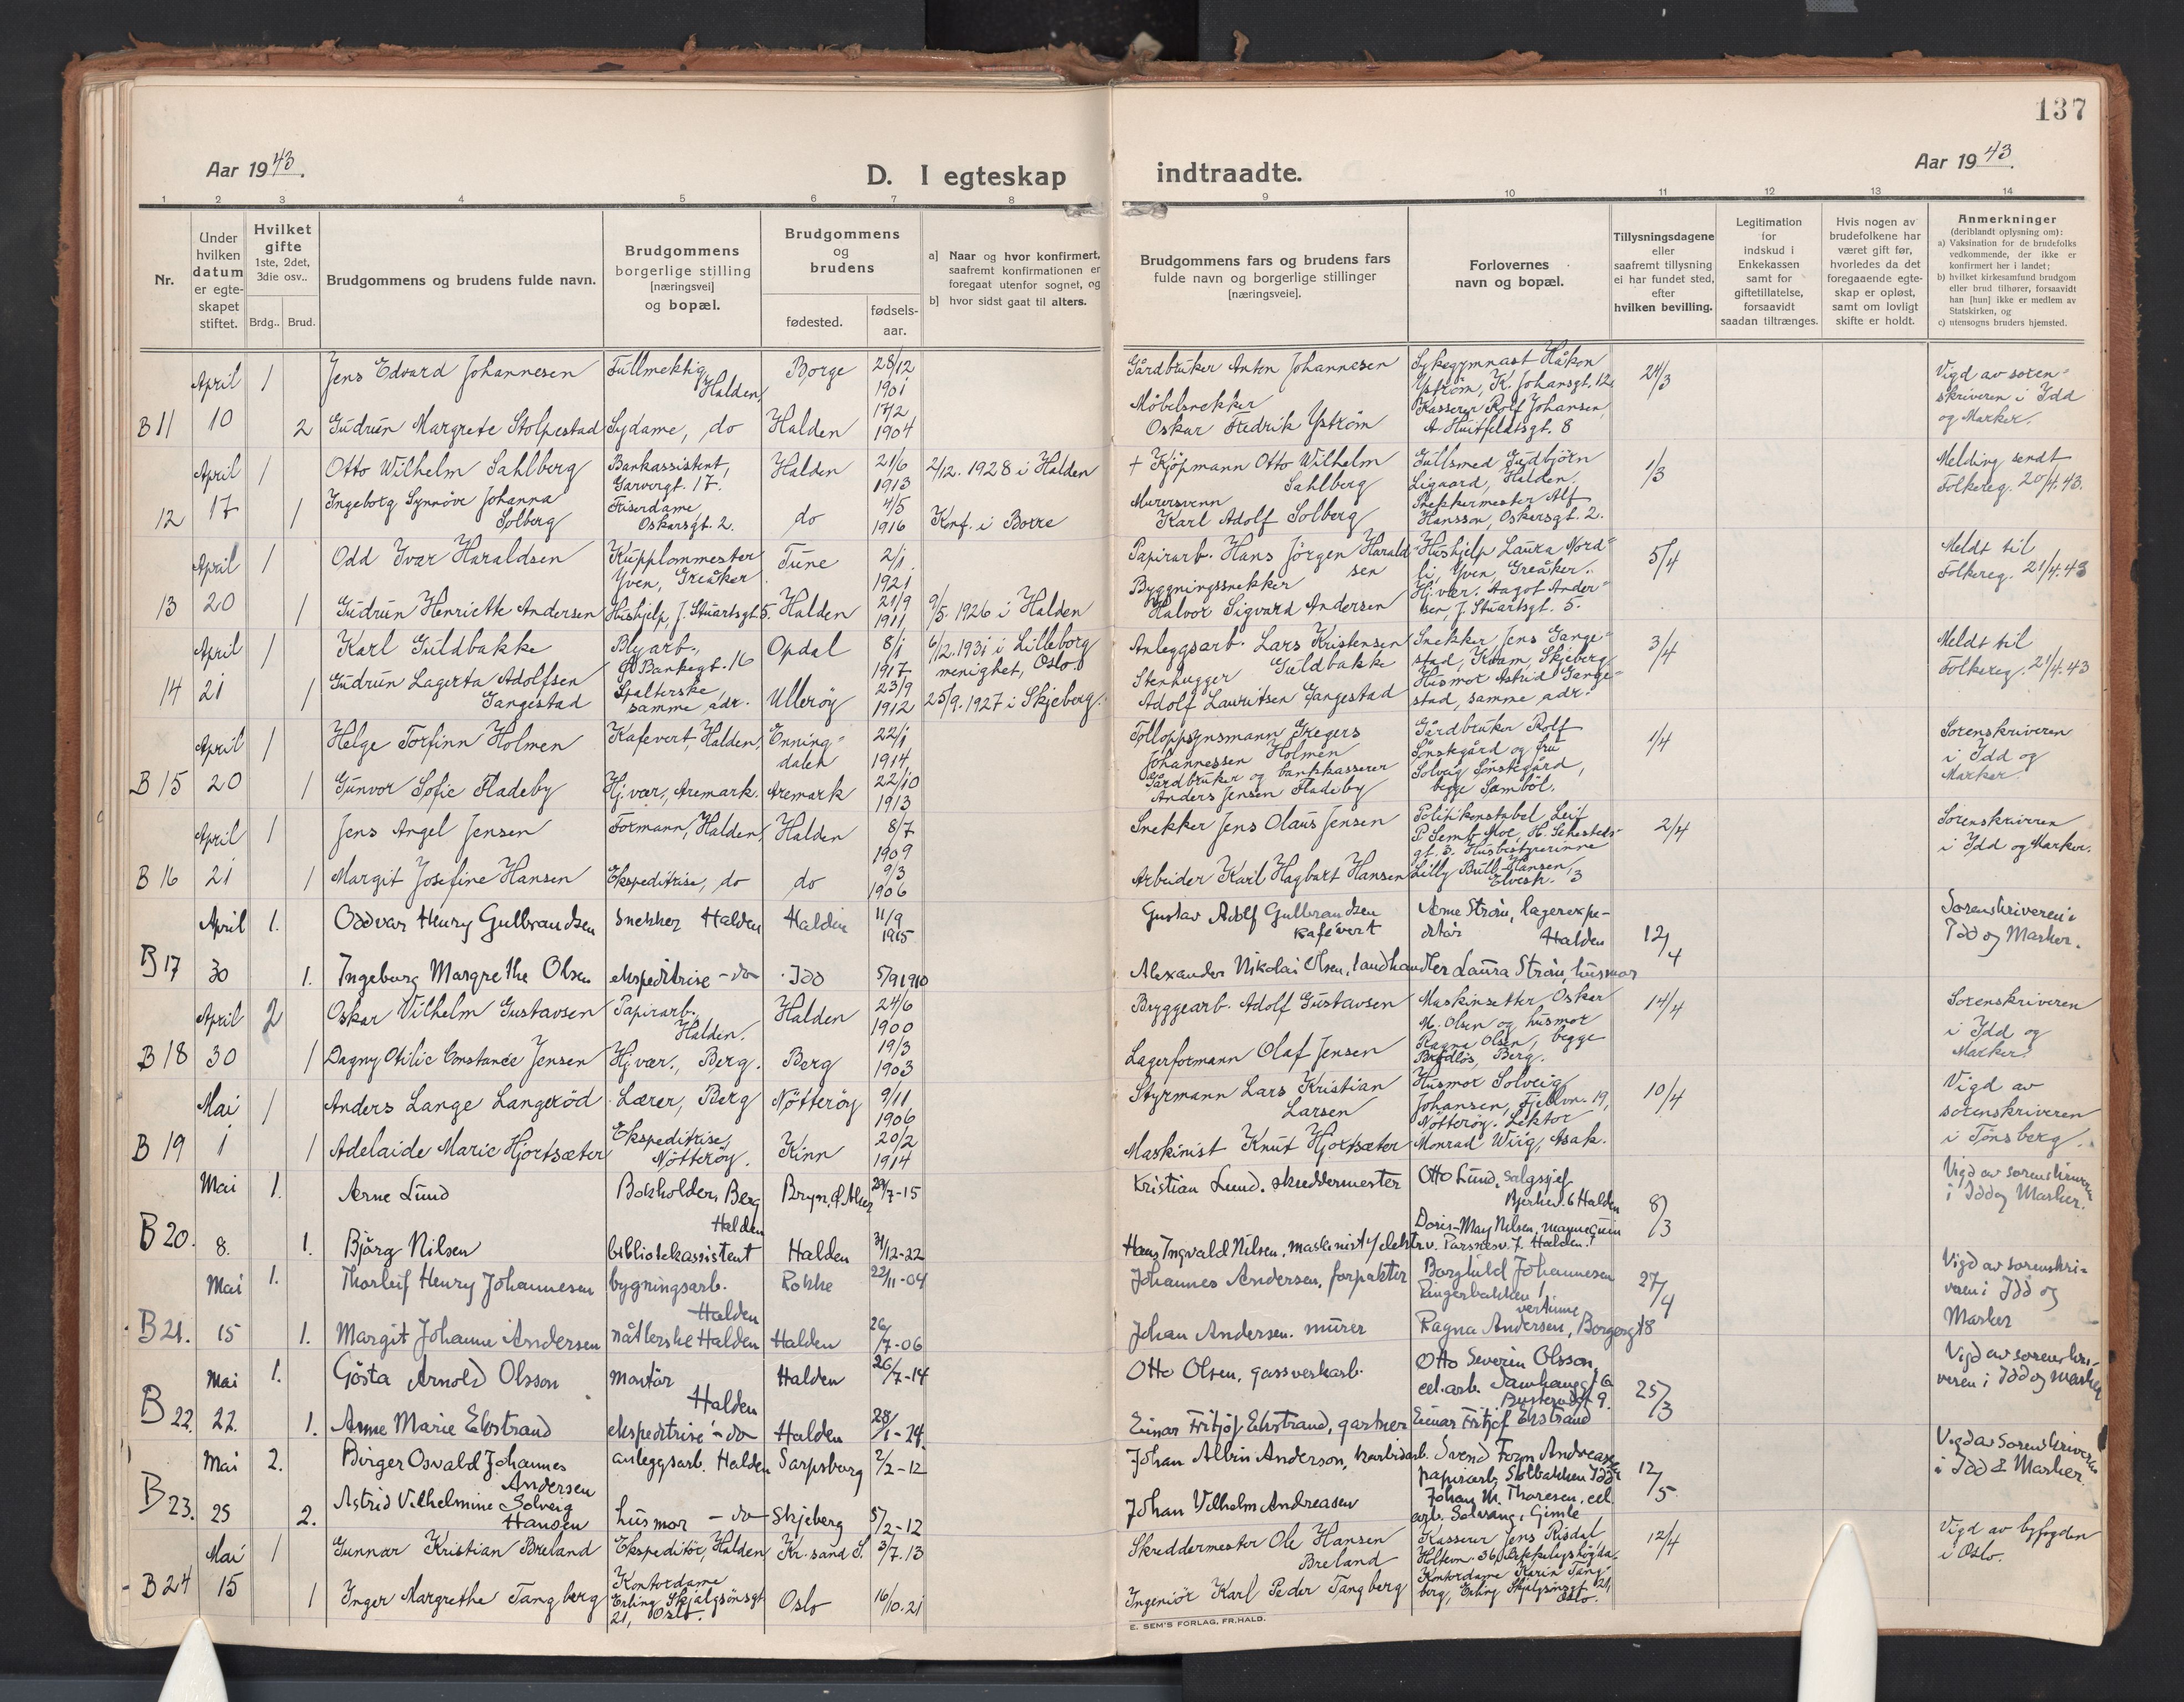 137
Aar 1943.
D. I egteskap indtraadte.
Aar 1943.
1 2 3 4 5 6 7 8 9 10 11 12 13 14
Nr.
Under
hvilken
datum
er egte-
skapet
stiftet.
Hvilket
gifte
1ste, 2det,
3die osv..
Brdg.. Brud.
Brudgommens og brudens fulde navn.
Brudgommens
borgerlige stilling
[næringsvei]
og bopæl.
Brudgommens
og
brudens
fødested.
fødsels-
aar.
a] Naar og hvor konfirmert,
saafremt konfirmationen er
foregaat utenfor sognet, og
b] hvor sidst gaat til alters.
Brudgommens fars og brudens fars
fulde navn og borgerlige stillinger
[næringsveie].
Forlovernes
navn og bopæl.
Tillysningsdagene
eller
saafremt tillysning
ei har fundet sted,
efter
hvilken bevilling.
Legitimation
for
indskud i
Enkekassen
samt for
giftetillatelse,
forsaavidt
saadan tiltrænges.
Hvis nogen av
brudefolkene har
været gift før,
hvorledes da det
foregaaende egte-
skap er opløst,
samt om lovligt
skifte er holdt.
Anmerkninger
(deriblandt oplysning om):
a) Vaksination for de brudefolks
vedkommende, der ikke er
konfirmert her i landet;
b) hvilket kirkesamfund brudgom
eller brud tilhører, forsaavidt
han [hun] ikke er medlem av
Statskirken, og
c) utensogns bruders hjemsted.
B 11
April
10
1
2
Jens Edvard Johannesen
Gudrun Margrete Stolpestad
Fullmektig
Halden,
Sydame, do
Borge
Halden
28/12
1901
17/2
1904
Gårdbruker Anton Johannesen
Møbelsnekker
Oskar Fredrik Yström
Sykegymnast Håkon
Yström, K. Johansgt. 12,
Kasserer Rolf Johansen,
A. Huitfeldtsgt. 8
24/3
Vigd av soren-
skriveren i Idd
og Marker.
12
April
17
1
1
Otto Wilhelm Sahlberg
Ingeborg Synnøve Johanna
Solberg
Bankassistent,
Garvergt. 17.
Friserdame,
Oskarsgt. 2.
Halden
do
21/6
1913
4/5
1916
2/12. 1928 i Halden
Konf. i Borre
+ Kjøpmann Otto Wilhelm
Sahlberg
Murersvenn
Karl Adolf Solberg
Gullsmed Gudbjörn
Ligaard, Halden.
Hansson, Oskarsgt. 2.
1/3
Melding sendt
Folkereg. 20/4.43.
13
April
20
1
1
Odd Ivar Haraldsen
Gudrun Henriette Andersen
Kupplommester
Yven, Greåker
Hushjelp, J. Stuartsgt. 5.
Tune
Halden
2/1.
1921
21/9
1911
9/5. 1926 i Halden
Papirarb. Hans Jörgen Harald-
sen
Byggningssnekker
Halvor Sigvard Andersen
Hushjelp Laura Nord-
li, Yven, Greåker.
Hj.vær. Aagot Ander-
sen, J. Stuartsgt. 5.
5/4
Meldt til
Folkereg. 21/4.43
14
April
21
1
1
Karl Guldbakke
Gudrun Lagerta Adolfsen
Gangestad
Blyarb.,
Ø. Bankegt. 16
Spalterske,
samme adr.
Opdal
Ullerøy
8/1
1917
23/9
1912
6/12. 1931 i Lilleborg
menighet, Oslo
25/9. 1927 i Skjeberg.
Anleggsarb. Lars Kristensen
Guldbakke
Stenhugger
Adolf Lauritsen Gangestad
Snekker Jens Gange-
stad, Kvam, Skjeberg
Husmor Astrid Gange-
stad, samme adr.
3/4
Meldt til
Folkereg. 21/4.43
B 15
April
20
1
1
Helge Torfinn Holmen
Gunvor Sofie Fladeby
Kafevert, Halden,
Hj.vær., Aremark.
Enning-
dalen
Aremark
22/1
1914,
22/10
1913
Tolloppsynsmann Gregers
Johannessen Holmen
Gårdbruker og bankkasserer
Anders Jensen Fladeby
Gårdbruker Rolf
Sönskgård og fru
Solveig Sönskgård,
begge Samböl.
1/4
Sorenskriveren
i Idd og
Marker.
B 16
April
21
1
1
Jens Angel Jensen
Margit Josefine Hansen
Formann, Halden,
Ekspeditrise, do
Halden
do
8/7
1909
9/3
1906
Snekker Jens Olaus Jensen
Arbeider Karl Hagbart Hansen
Politikonstabel Leif
P. Semb Moe, H. Sehesteds-
gt. 3. Husbestyrerinne
Lilly Bull-Hansen,
Elvestr. 3
2/4
Sorenskriveren
i Idd og Marker.
B 17
April
30
1.
1.
Oddvar Henry Gulbrandsen
Ingeborg Margrethe Olsen
snekker Halden
ekspeditrise - do
Halden
Idd
11/9
1915
5/9 1910
Gustav Adolf Gulbrandsen
kafevert
Alexander Nikolai Olsen, landhandler
Arne Strøm, lagerexpe-
ditør Halden
Laura Strøm, husmor
12/4
Sorenskriveren i
Idd og Marker.
B 18
April
30
2
1
Oskar Vilhelm Gustavsen
Dagny Otilie Constance Jensen
Papirarb.,
Halden.
Hj.vær., Berg.
Halden
Berg
24/6
1900
19/3
1903
Bryggearb. Adolf Gustavsen
Lagerformann Olaf Jensen
Maskinsetter Oskar
M. Olsen og husmor
Ragna Olsen, begge
Brødløs, Berg.
14/4
Sorenskriveren
i Idd og
Marker.
B 19
Mai
1
1
1
Anders Lange Langeröd
Adelaide Marie Hjortsæter
Lærer, Berg
Ekspeditrise,
Nötteröy.
Nötteröy
Kinn
9/11
1906
20/2
1914
Styrmann Lars Kristian
Larsen
Maskinist Knut Hjortsæter
Husmor Solveig
Johansen, Fjellvn. 19,
Nötteröy. Lektor
Monrad Wiig, Asak.
10/4
Vigd av
sorenskriveren
i Tönsberg.
B 20.
Mai
8.
1.
1.
Arne Lund
Bjørg Nilsen
Bokholder, Berg
Halden
bibliotekassistent
Halden
/7-15
31/12-22
Kristian Lund. skreddermester
Hans Ingvald Nilsen, maskinist
Otto Lund, salgssjef
Halden
Doris-May Nilsen, mannequin
8/3
Vigd av sorenskriveren
i Idd og Marker.
B 21.
Mai
15
1.
1.
Thorleif Henry Johannesen
Margit Johanne Andersen
bygningsarb.
Halden
nåtlerske Halden
Rokke
Halden
22/11-04
26/7-06
Johannes Andersen, forpakter
Johan Andersen. murer
Borghild Johannesen
Ringerbakken,
vertinne
Ragna Andersen, Borgergt 8
27/4
Vigd av sorenskri-
veren i Idd og
Marker
B 22.
Mai
22.
1.
1.
Gösta Arnold Olsson
Anne Marie Ekstrand
montør
Halden
ekspeditrise - do
Halden
Halden
26/7-14
28/1-24.
Otto Olsen, gassverkarb.
Einar Fritjof Ekstrand, gartner
Otto Severin Olsson,
Einar Fritjof Ekstrand
25/3
Vigd av sorenskri-
veren i Idd og Marker
B 23.
Mai
25
2.
2.
Birger Osvald Johannes
Andersen
Astrid Vilhelmine Solveig
Hansen
anleggsarb. Halden
husmor - do
Sarpsborg
Skjeberg
2/2-12
5/2-12
Johan Albin Anderson, karbidarb.
Johan Vilhelm Andreasen
Svend Foyn Andreasen
papirarb, Stolbakken Idd
Johan M. Thoresen, cel.
arb. Gimle
12/5
Vigd av Sorenskriveren
i Idd & Marker
B 24
Mai
15
1
1
Gunnar Kristian Breland
Inger Margrethe Tangberg
Ekspeditör, Halden
Kontordame
Erling Skjalgsönsgt
21, Oslo.
Kr.sand S.
Oslo
3/7.13
16/10.21
Skreddermester Ole Hansen
Breland
Ingeniör Karl Peder Tangberg
Kasserer Jens Risdal
Kontordame Karin Tang-
berg, Erling Skjalgsönsgt 21,
Oslo.
12/4
Vigd av byfogden
i Oslo.
E. SEM'S FORLAG, FR.HALD.